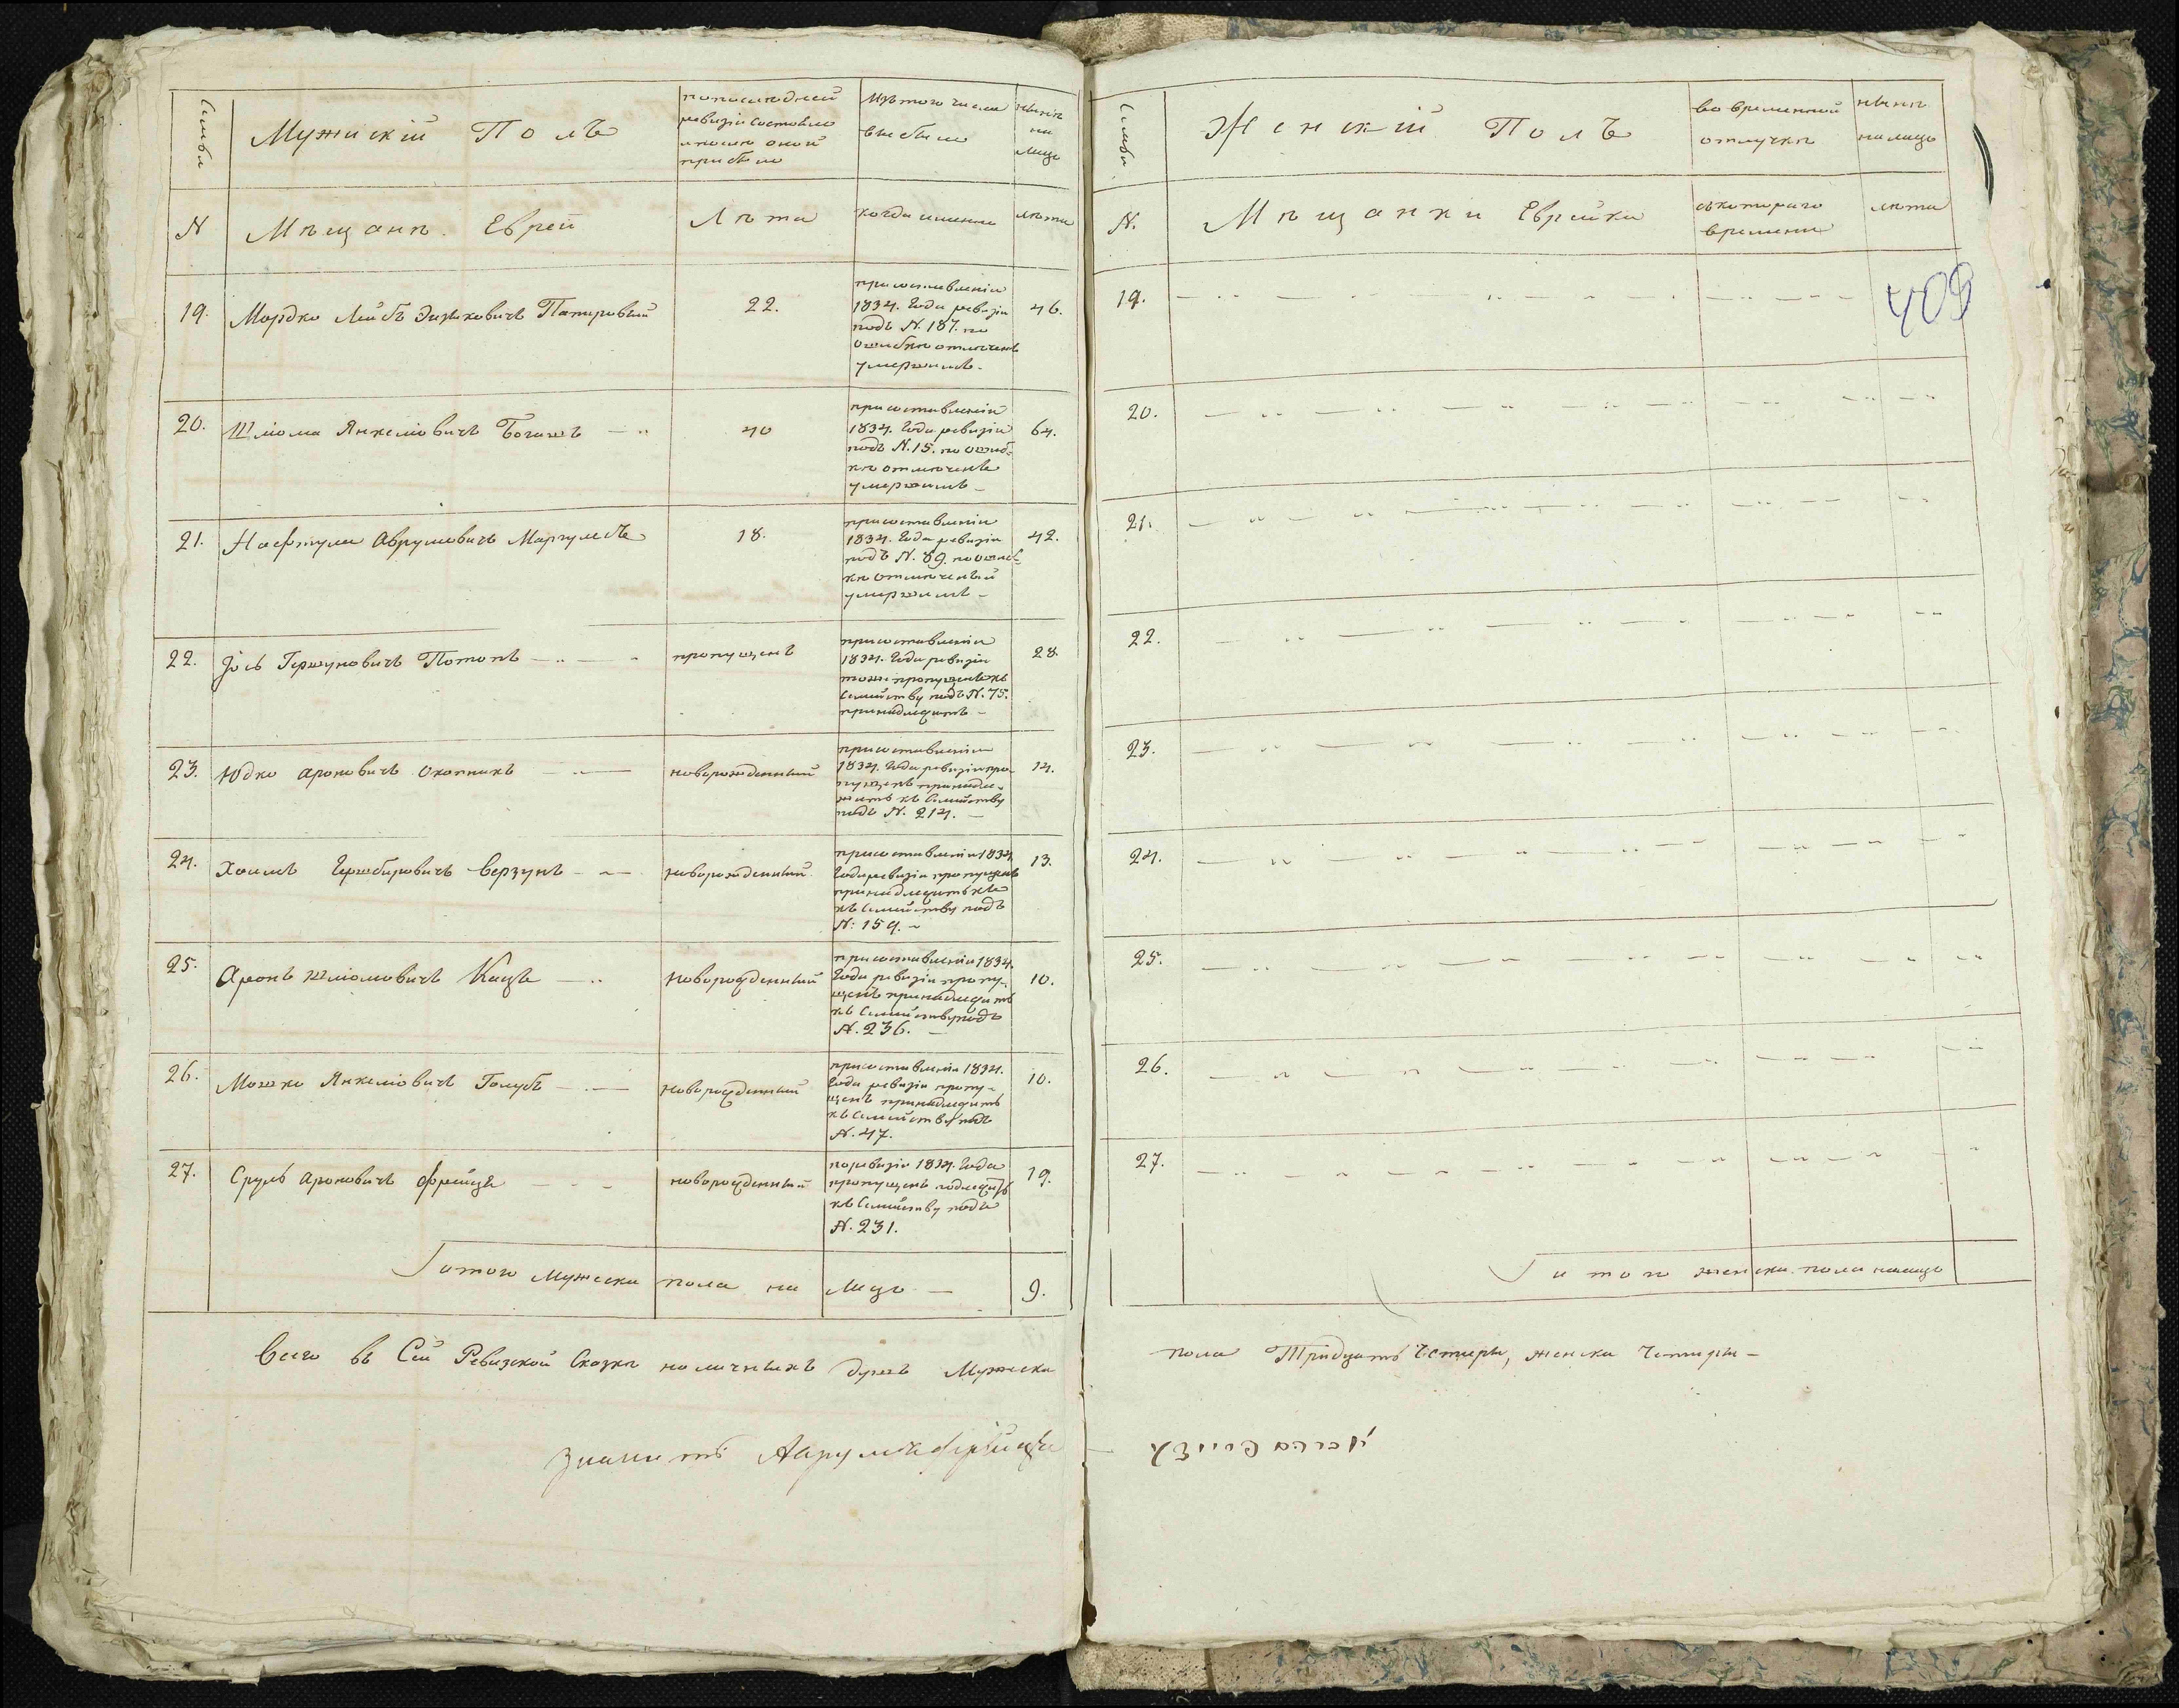 Семья
Мужискій Полъ
попоследней
ревизіи состояло
ипосле оной
прибыло
Изътого числа
выбыло
ныне
на
лицо
N
Мещане. Еврей
Лета
когда именно
лета
19.
Мордко Лейбъ Ицковичъ Папировый
22.
присоставленіи
1834. Года ревизіи
подъ N. 187. по
ошибке отмеченъ
умершимъ.
46.
20.
Шліома Янкеліовичъ Богашъ
40
присоставленіи
1834. Года ревизіи
подъ N. 15. по ошиб-
ке отмеченъ
умершимъ
64.
21.
Нафтули Аврумовичъ Маргулесъ
18.
присоставленіи
1834. Года ревизіи
подъ N. 89. по ошиб-
ке отмеченый
умершимъ
42.
22.
Іось Гершуновичъ Потопъ
пропущенъ
присоставленіи
1834. Года ревизіи
тоже пропущенъ къ
Семейству подъ N. 75.
принадлежитъ
28.
23.
Юдко Ароновичъ Охотникъ
новорожденный
присоставленіи
1834. Года ревизіи про-
пущенъ принадле-
житъ къ Семейству
подъ N. 214.
14.
24.
Хаимъ Гершберовичъ Верзунъ
новорожденный
присоставленіи 1834.
Года ревизіи пропущенъ
принадлежитъ къ
къ Семейству подъ
N: 159.
13.
25.
Аронъ Шліомовичъ Кацъ
новорожденный
присоставленіи 1834.
Года ревизіи пропу-
щенъ принадлежитъ
къ Семейству подъ
N. 236.
10.
26.
Мошко Янкеліовичъ Голубъ
новорожденный
присоставленіи 1834.
Года ревизіи пропу-
щенъ принадлежитъ
къ Семейству подъ
N. 47.
10.
27.
Сруль Ароновичъ Фрейцъ
новорожденный
поревизіи 1834. Года
пропущенъ
къ Семейству подъ
N. 231.
19.
Итого Мужеска пола на Лицо
9.
Всего въ Сей Ревизской Сказке наличныхъ душъ Мужеска
Семья
Женскій Полъ
во временной
отлучке
ныне
налицо
N.
Мещанки Еврейки
скотораго
времени
лета
409
19.
20.
21.
22.
23.
24.
25.
26.
27.
Итого женска пола налицо
пола Тридцать Четыри, женска Четыри